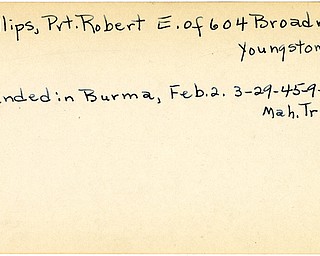 lips, Pvt. Robert E. of 604 Broadw
Youngstow
unded in Burma, Feb. 2. 3-29-45-9-
Mah. Tr